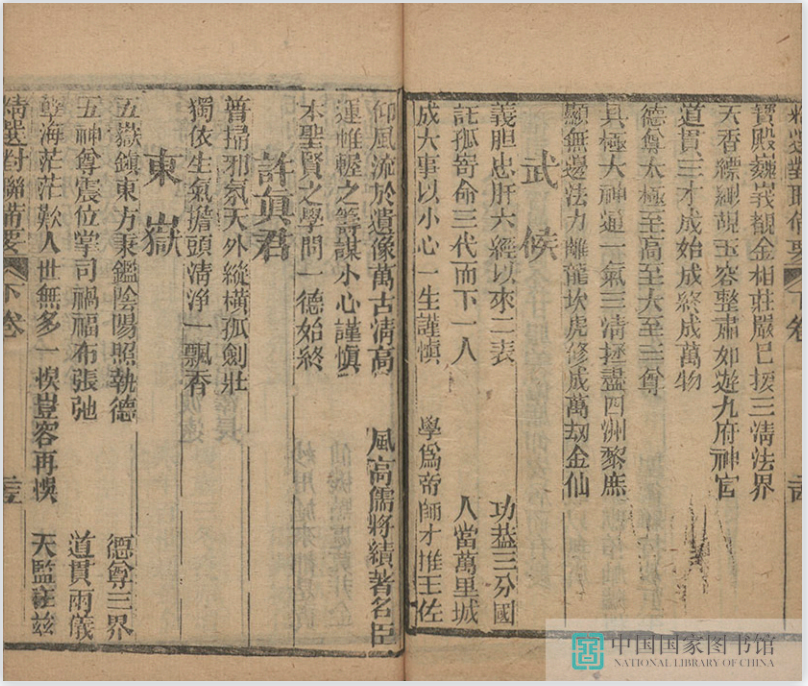 精選對聯備要 下卷
寶殿巍峩觀金相莊嚴已接三清法界
天香縹緲覩玉容整肅如遊九府神宮
道貫三才成始成終成萬物
德尊太極至高至大至三尊
具極大神通一氣三清拯盡四洲黎庶
顯無邊法力離龍坎虎修成萬刼金仙
武候
義胆忠肝六經以來二表 功葢三分國
託孤寄命三代而下一人 人當萬里城
成大事以小心一生謹慎 學爲帝師才推王佐
仰風流於遺像萬古清高 風高儒將績著名臣
運帷幄之籌謀小心謹慎
本聖賢之學問一德始終
許眞君
普掃邪氛天外縱橫孤劍壯
獨依生氣擔頭清淨一瓢香
東嶽
五嶽鎮東方秉鑑陰陽照執德 德尊三界
五神尊震位掌司禍福布張弛 道貫兩儀
孽海茫茫歎人世無多一悞豈容再悞 天監在兹
精選對聯備要 下卷
中国国家图书馆
NATIONAL LIBRARY OF CHINA